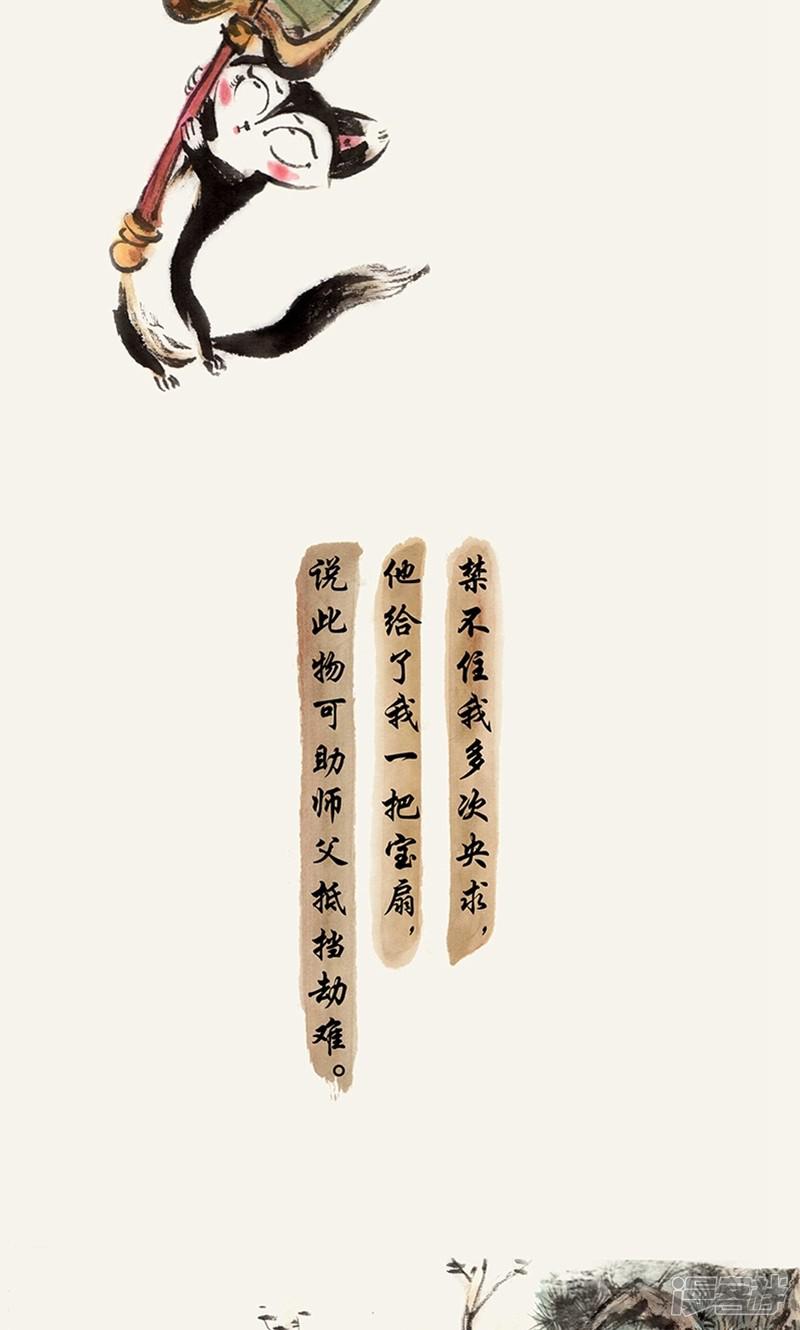 禁不住我多次央求，
他给了我一把宝扇，
说此物可助师父抵挡劫难。
漫客栈